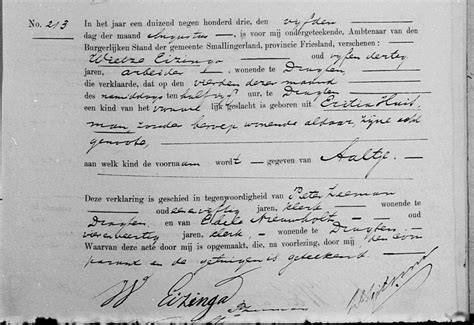 No. 213
In het jaar een duizend negen honderd drie, den vijfden
dag der maand Augustus, is voor mij ondergeteekende, Ambtenaar van den
Burgerlijken Stand der gemeente Smallingerland, provincie Friesland, verschenen:
Wietze Eizinga oud vijf en dertig
jaren, arbeider, wonende te Dragten
die verklaarde, dat op den vierden dezer maand
des namiddags ten half vijf ure, te Dragten
een kind van het vrouwelijk geslacht is geboren uit Huis,
zonder beroep wonende aldaar, zijne echt
genoote,
aan welk kind de voornaam wordt gegeven van Aaltje.
Deze verklaring is geschied in tegenwoordigheid van Pieter
oud jaren, klerk wonende te
Dragten, en van oud
veertig jaren, klerk, wonende te Dragten.
Waarvan deze acte door mij is opgemaakt, die, na voorlezing, door mij den com
parant en de getuigen is geteekend.
W Eizinga